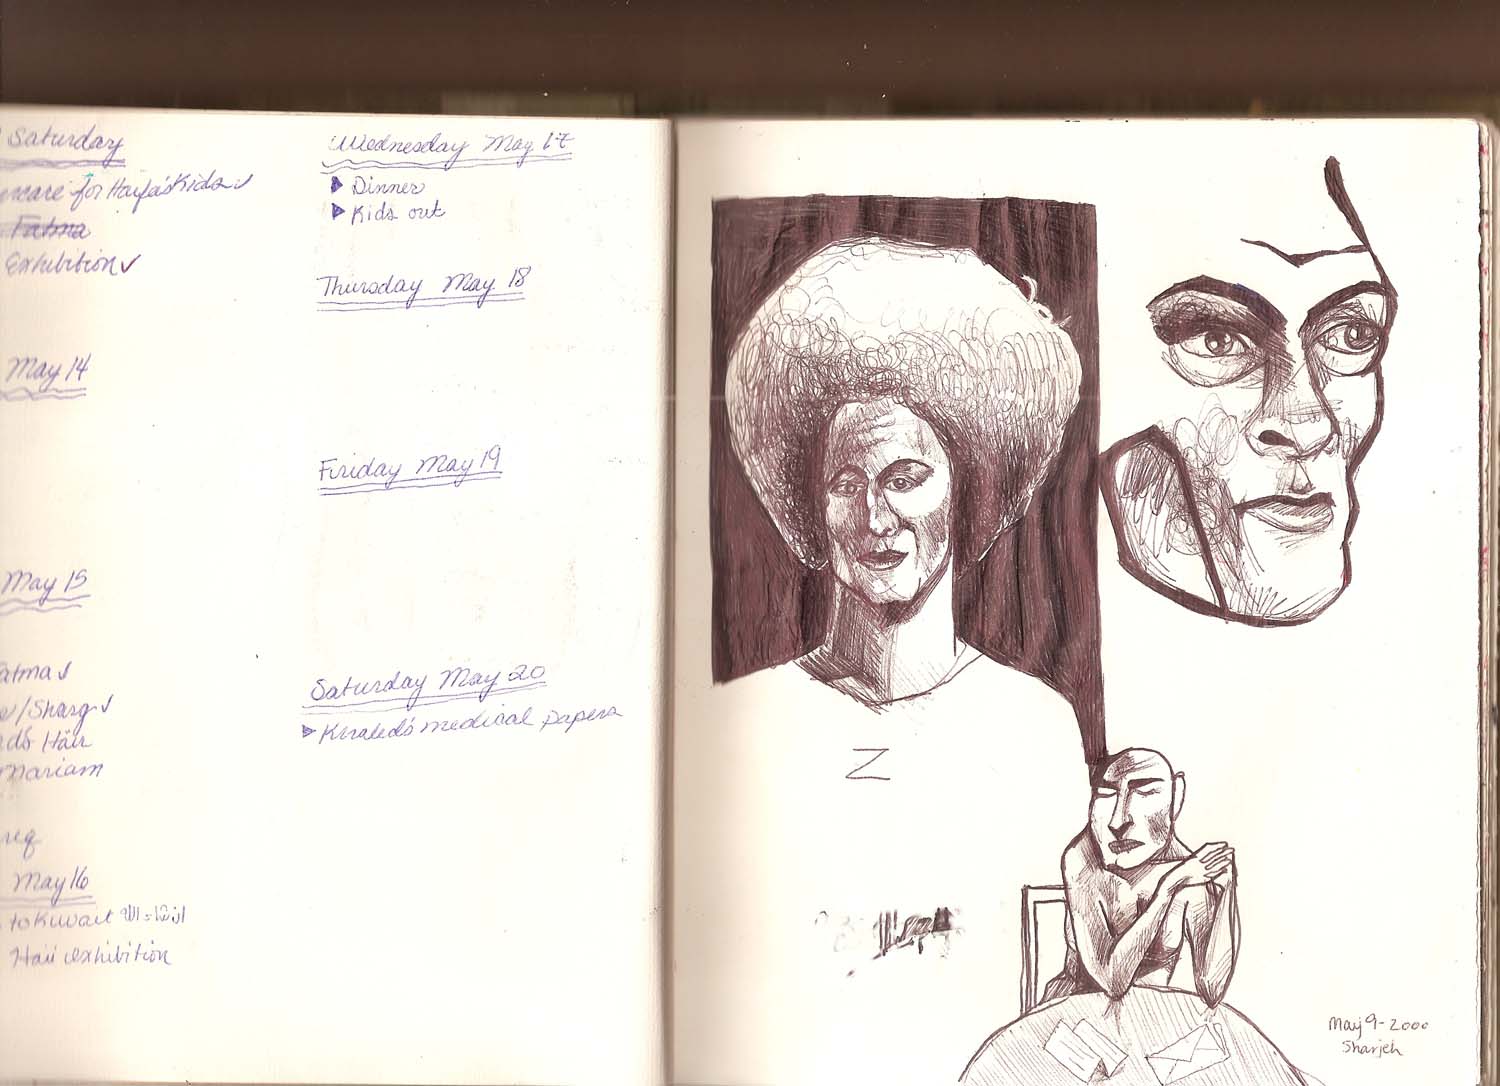 Saturday
for Haifa's Kids ✓
Fatma
Exhibition ✓
May 14
May 15
atma ✓
/Sharq ✓
Hair
Mariam
May 16
to Kuwait ان شاء الله
Hair exhibition
Wednesday May 17
Dinner
Kids out
Thursday May 18
Friday May 19
Saturday May 20
Khaled's medical papers
Z
May 9-2000
Sharjeh